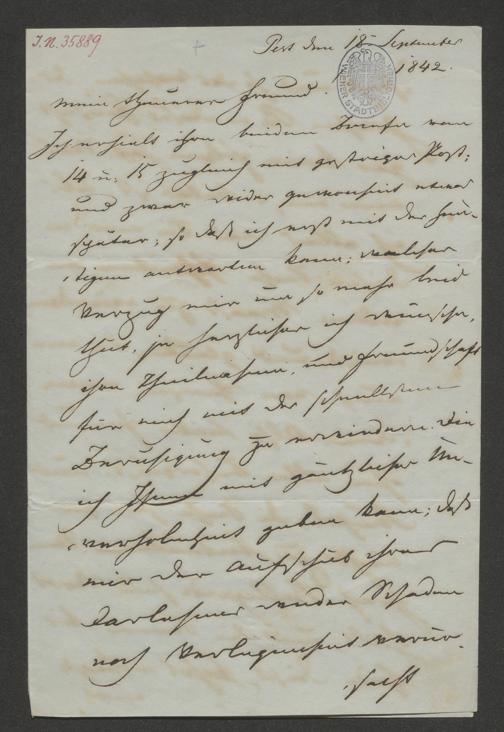 I.N. 35889
Pest den 18 September
1842.
mein theuerer Freund.
Ich erhielt ihre beiden Briefe vom
14 u: 15 zugleich mit gestriger Post;
und zwar wider gewonheit etwas
später; so daß ich erst mit der heu-
tigen antworten kann; welcher
Verzug mir um so mehr leid
thut, je herzlicher ich wünsche,
ihre Theilnahme, und Freundschaft
für mich mit der schnellsten
Beruhigung zu erwiedern. die
ich Ihnen mit gäntzlicher Un-
verholenheit geben kann; daß
mir der Aufschub ihres
Darlehens weder Schaden
noch Verlegenheit verur-
sacht